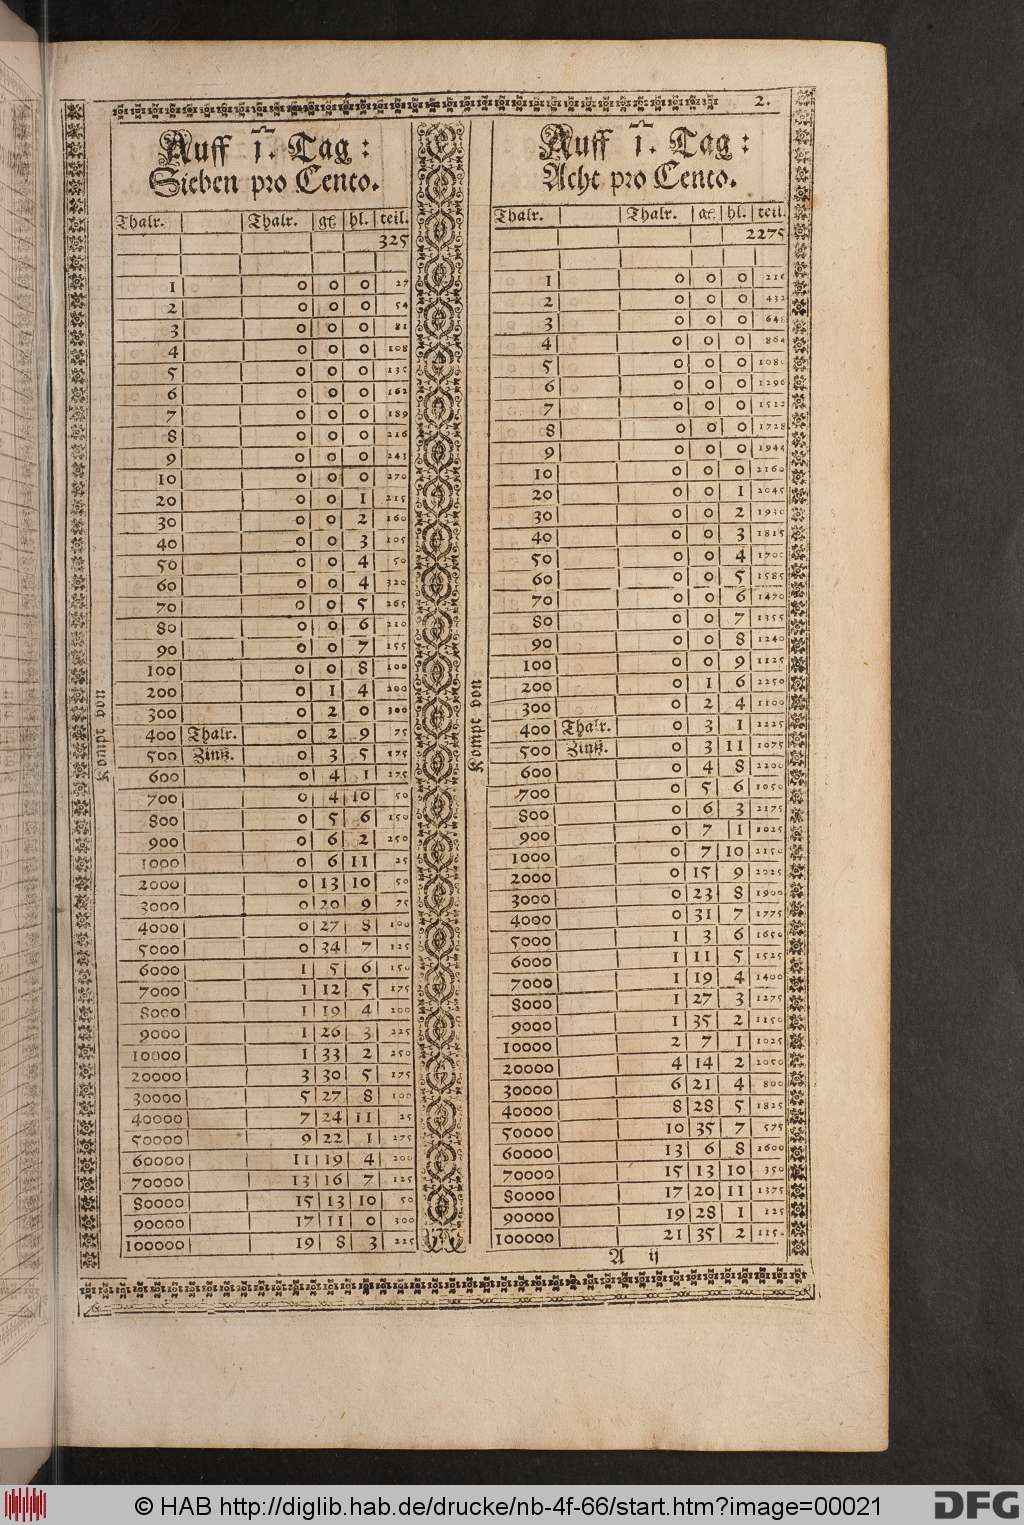 2.
Auff 1. Tag:
Sieben pro Cento.
Thalr. Thalr. gr hl. teil.
325
1 0 0 0 27
2 0 0 0 54
3 0 0 0 81
4 0 0 0 108
5 0 0 0 135
6 0 0 0 162
7 0 0 0 189
8 0 0 0 216
9 0 0 0 243
10 0 0 0 270
20 0 0 1 215
30 0 0 2 160
40 0 0 3 105
50 0 0 4 50
60 0 0 4 320
70 0 0 5 265
80 0 0 6 210
90 0 0 7 155
100 0 0 8 100
200 0 1 4 200
300 0 2 0 300
Kompt von
400 Thalr. 0 2 9 75
500 Zinß. 0 3 5 175
600 0 4 1 275
700 0 4 10 50
800 0 5 6 150
900 0 6 2 250
1000 0 6 11 25
2000 0 13 10 50
3000 0 20 9 75
4000 0 27 8 100
5000 0 34 7 125
6000 1 5 6 150
7000 1 12 5 175
8000 1 19 4 200
9000 1 26 3 225
10000 1 33 2 250
20000 3 30 5 175
30000 5 27 8 100
40000 7 24 11 25
50000 9 22 1 275
60000 11 19 4 200
70000 13 16 7 125
80000 15 13 10 50
90000 17 11 0 300
100000 19 8 3 225
Auff 1. Tag:
Acht pro Cento.
Thalr. Thalr. gr hl. teil.
2275
1 0 0 0 216
2 0 0 0 432
3 0 0 0 648
4 0 0 0 864
5 0 0 0 1080
6 0 0 0 1296
7 0 0 0 1512
8 0 0 0 1728
9 0 0 0 1944
10 0 0 0 2160
20 0 0 1 2045
30 0 0 2 1930
40 0 0 3 1815
50 0 0 4 1700
60 0 0 5 1585
70 0 0 6 1470
80 0 0 7 1355
90 0 0 8 1240
100 0 0 9 1125
200 0 1 6 2250
300 0 2 4 1100
Kompt von
400 Thalr. 0 3 1 2225
500 Zinß. 0 3 11 1075
600 0 4 8 2200
700 0 5 6 1050
800 0 6 3 2175
900 0 7 1 1025
1000 0 7 10 2150
2000 0 15 9 2025
3000 0 23 8 1900
4000 0 31 7 1775
5000 1 3 6 1650
6000 1 11 5 1525
7000 1 19 4 1400
8000 1 27 3 1275
9000 1 35 2 1150
10000 2 7 1 1025
20000 4 14 2 2050
30000 6 21 4 800
40000 8 28 5 1825
50000 10 35 7 575
60000 13 6 8 1600
70000 15 13 10 350
80000 17 20 11 1375
90000 19 28 1 125
100000 21 35 2 1150
A ij
© HAB http://diglib.hab.de/drucke/nb-4f-66/start.htm?image=00021
DFG